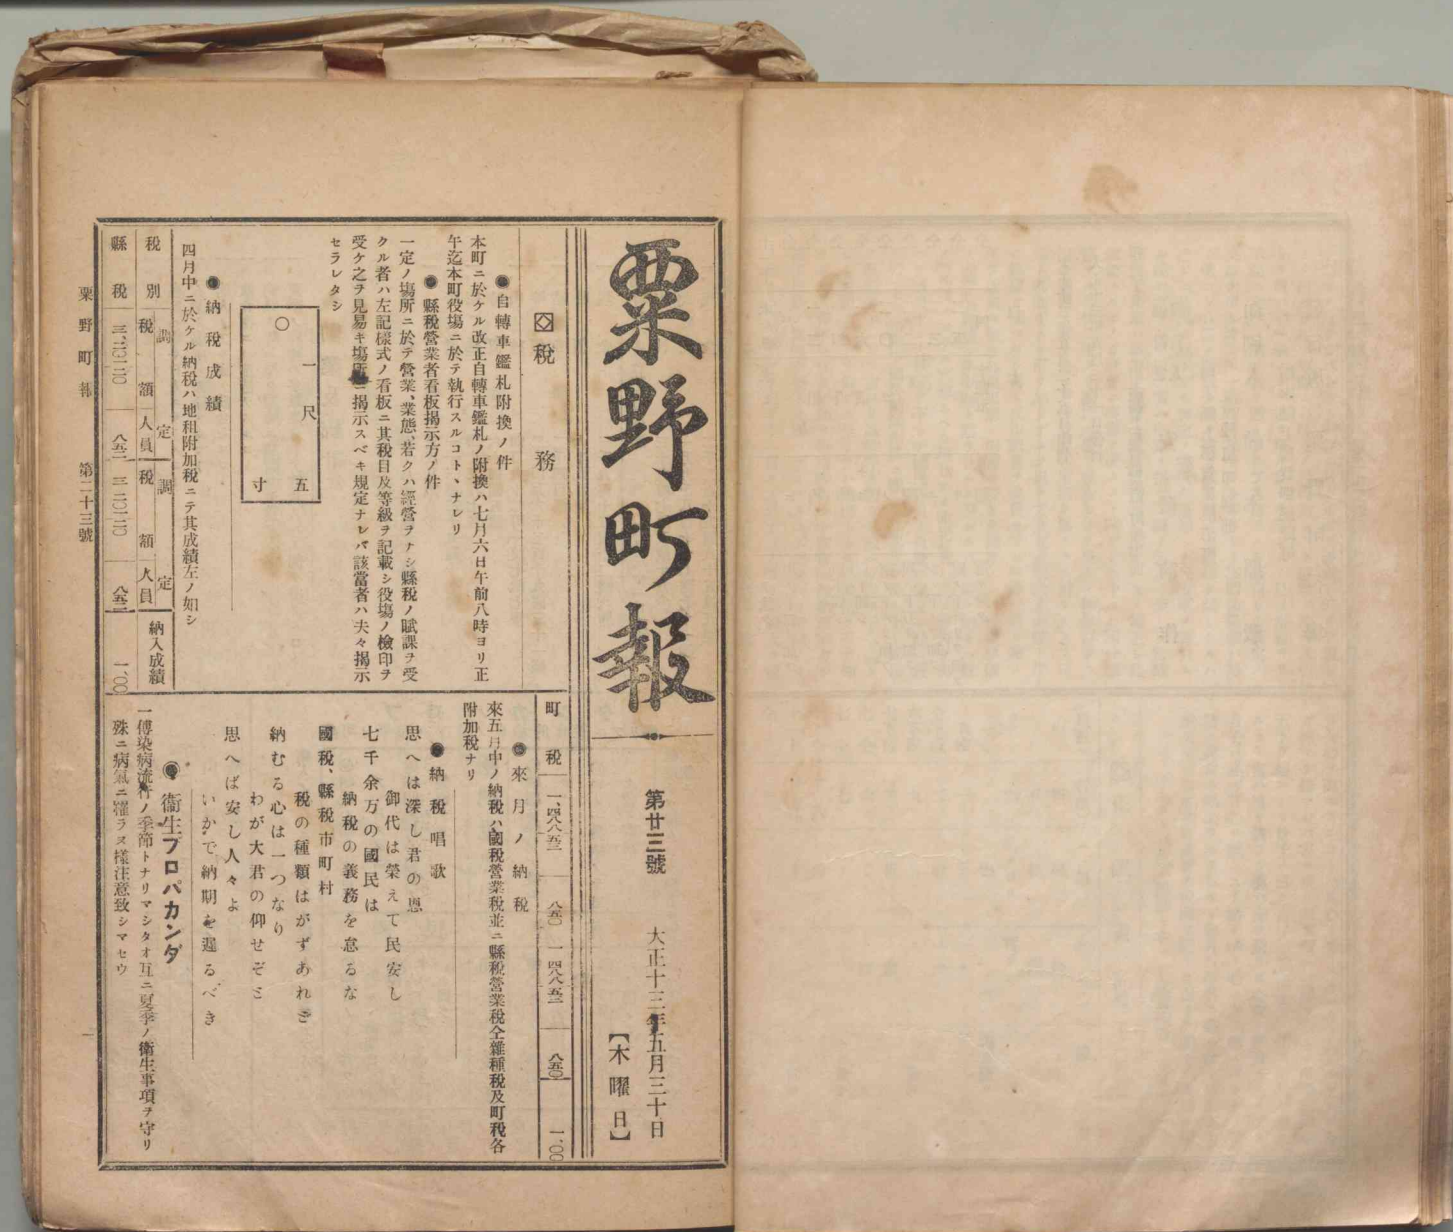 粟野町報
第廿三號
大正十三年五月三十日
【木曜日】
税務
●自轉車鑑札附換ノ件
本町ニ於ケル改正自轉車鑑札ノ附換ハ七月六日午前八時ヨリ正
午迄本町役場ニ於テ執行スルコトヽナレリ
●縣税營業者看板揭示方ノ件
一定ノ場所ニ於テ營業、業態、若クハ經營ヲナシ縣税ノ賦課ヲ受
クル者ハ左記樣式ノ看板ニ其税目及等級ヲ記載シ役塲ノ檢印ヲ
受ケ之ヲ見易キ塲所ニ揭示スベキ規定ナレバ該當者ハ夫々揭示
セラレタシ
一尺
五寸
○
●納税成績
四月中ニ於ケル納税ハ地租附加税ニテ其成績左ノ如シ
税別 調定 税額 人員 調定 税額 人員 納入成績
縣税 八五二 八五二 一、〇〇
町税 一、四八八五二 八五〇 一四八八五二 八五〇 一、〇〇
●來月ノ納税
來五月中ノ納税ハ國税營業税並ニ縣税營業税全雜種税及町税各
附加税ナリ
●納税唱歌
思へは深し君の恩
御代は榮えて民安し
七千余万の國民は
納税の義務を怠るな
國税、縣税市町村
税の種類はかずあれど
納むる心は一つなり
わが大君の仰せぞと
思へば安し人々よ
いかで納期を遲るべき
◉衞生プロパカンダ
一傳染病流行ノ季節トナリマシタオ互ニ夏季ノ衞生事項ヲ守リ
殊ニ病氣ニ罹ラヌ樣注意致シマセウ
粟野町報 第二十三號